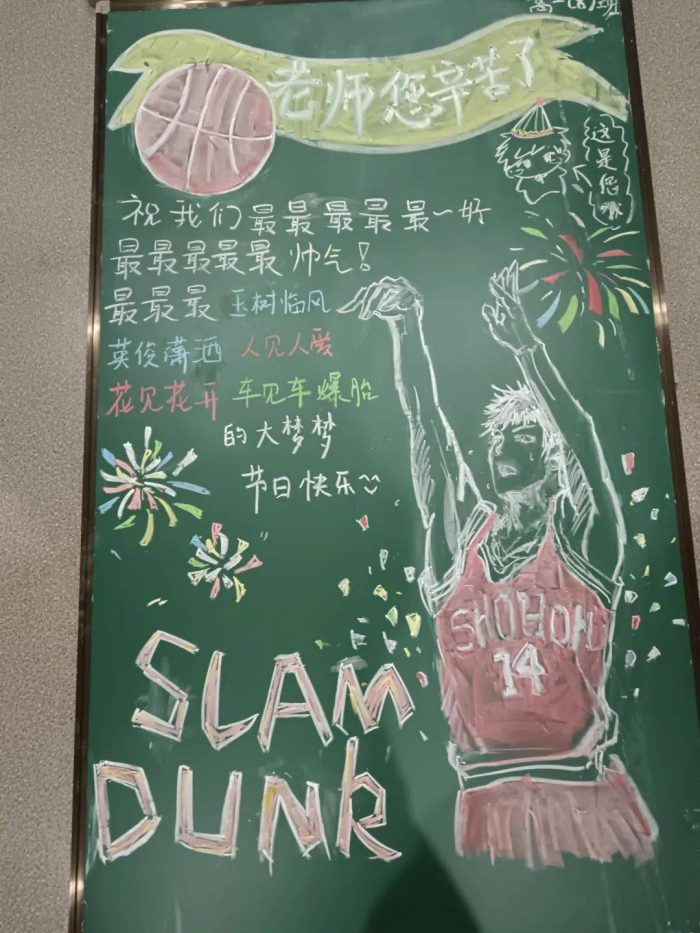 高一(8)班
老师您辛苦了
这是您哦
祝我们最最最最最~好
最最最最最帅气！
最最最玉树临风
英俊潇洒 人见人爱
花见花开 车见车爆胎
的大梦梦
节日快乐
SLAM
DUNK
SHOHOKU
14